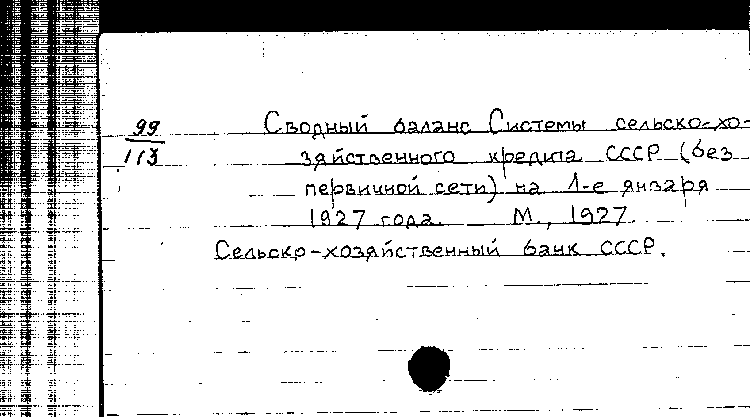 99
113
Сводный баланс Системы сельско-хо-
зяйственного кредита СССР (без
первичной сети) на 1-е января
1927 года. М., 1927.
Сельско-хозяйственный банк СССР.